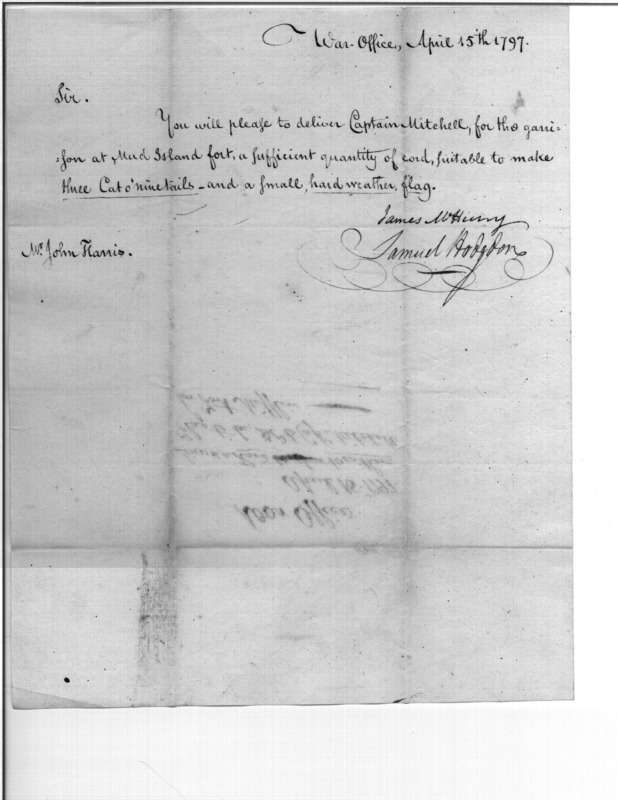 War-Office, April 15th 1797.
Sir.
You will please to deliver Captain Mitchell, for the garri=
=son at Mud Island fort, a sufficient quantity of cord, suitable to make
three Cat o' nine tails - and a small, hard weather, flag.
James McHenry
Samuel Hodgdon
Mr. John Harris.
War Office
April 15 1797